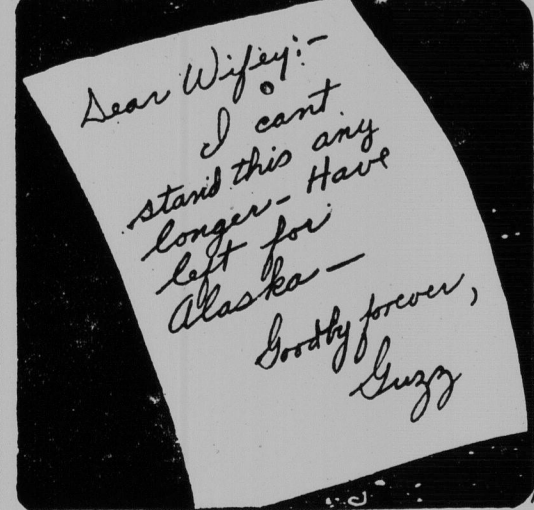 Dear Wifey:—
I cant
stand this any
longer — Have
left for
Alaska —
Goodby forever,
Guzz